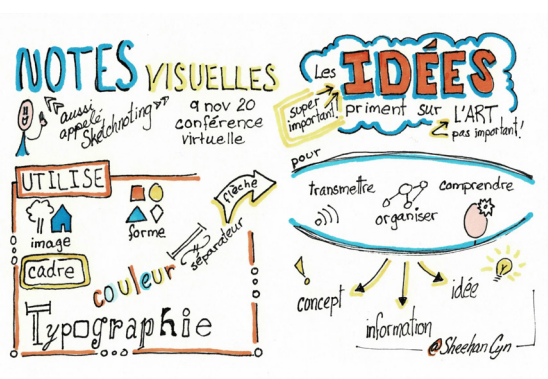 NOTES VISUELLES
aussi
appelé
"Sketchnoting"
9 nov 20
conférence
virtuelle
Les IDÉES
super
important!
priment sur L'ART
pas important!
UTILISE
image
forme
flèche
séparateur
cadre
couleur
Typographie
pour
transmettre
organiser
comprendre
concept
information
idée
@SheehanCyn